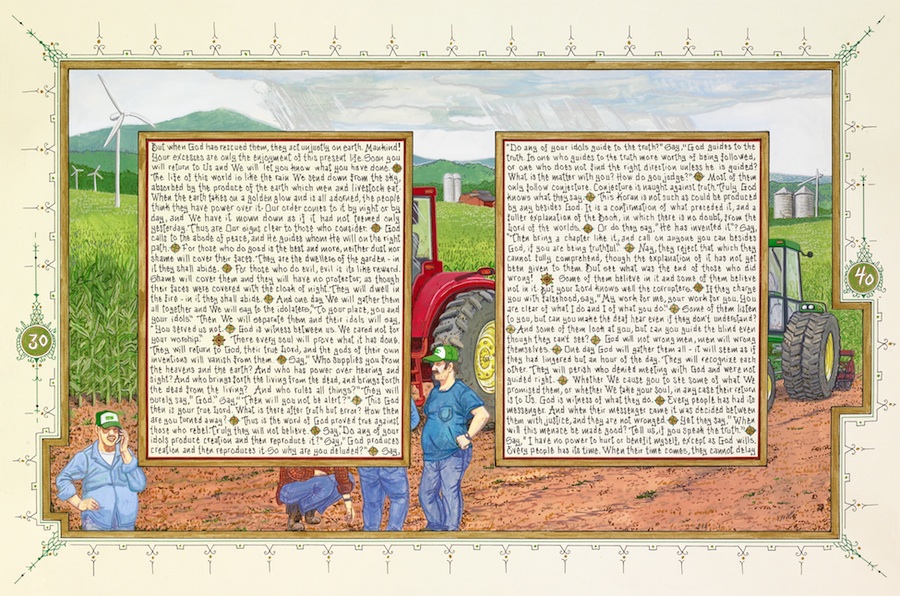 But when God has rescued them, they act unjustly on earth. Mankind!
Your excesses are only the enjoyment of this present life. Soon you
will return to Us and We will let you know what you have done.
The life of this world is like the rain We send down from the sky,
absorbed by the produce of the earth which men and livestock eat.
When the earth takes on a golden glow and is all adorned, the people
think they have power over it. Our order comes to it by night or by
day, and We have it mown down as if it had not teemed only
yesterday. Thus are Our signs clear to those who consider. God
calls to the abode of peace, and He guides whom He will on the right
path. For those who do good is the best and more, neither dust nor
shame will cover their faces. They are the dwellers of the garden - in
it they shall abide. For those who do evil, evil is its like reward.
Shame will cover them and they will have no protector, as though
their faces were covered with the cloak of night. They will dwell in
the fire - in it they shall abide. And one day We will gather them
all together and We will say to the idolaters, "To your place, you and
your idols." Then We will separate them and their idols will say,
"You served us not. God is witness between us. We cared not for
your worship." There every soul will prove what it has done.
They will return to God, their true Lord, and the gods of their own
inventions will vanish from them. Say, "Who supplies you from
the heavens and the earth? And who has power over hearing and
sight? And who brings forth the living from the dead, and brings forth
the dead from the living? And who rules all things?" They will
surely say, "God." Say, "Then will you not be alert?" This God
then is your true Lord. What is there after truth but error? How then
are you turned away? Thus is the word of God proved true against
those who rebel: Truly they will not believe. Say, "Do any of your
idols produce creation and then reproduce it?" Say, "God produces
creation and then reproduces it. So why are you deluded?" Say,
"Do any of your idols guide to the truth?" Say, "God guides to the
truth. Is one who guides to the truth more worthy of being followed,
or one who does not find the right direction unless he is guided?
What is the matter with you? How do you judge?" Most of them
only follow conjecture. Conjecture is naught against truth. Truly God
knows what they say. This Koran is not such as could be produced
by any besides God. It is a confirmation of what preceded it, and a
fuller explanation of the Book, in which there is no doubt, from the
Lord of the worlds. Or do they say, "He has invented it"? Say,
"Then bring a chapter like it, and call on anyone you can besides
God, if you are being truthful." Nay, they reject that which they
cannot fully comprehend, though the explanation of it has not yet
been given to them. But see what was the end of those who did
wrong! Some of them believe in it and some of them believe
not in it. But your Lord knows well the corrupters. If they charge
you with falsehood, say, "My work for me, your work for you. You
are clear of what I do and I of what you do." Some of them listen
to you, but can you make the deaf hear even if they don't understand?
And some of them look at you, but can you guide the blind even
though they can't see? God will not wrong men, men will wrong
themselves. One day God will gather them all - it will seem as if
they had lingered but an hour of the day. They will recognize each
other. They will perish who denied meeting with God and were not
guided right. Whether We cause you to see some of what We
promised them, or whether We take your soul, in any case their return
is to Us. God is witness of what they do. Every people has had its
messenger. And when their messenger came it was decided between
them with justice, and they are not wronged. Yet they say, "When
will this menace be made good? Tell us, if you speak the truth."
Say, "I have no power to hurt or benefit myself, except as God wills.
Every people has its time. When their time comes, they cannot delay
30
40